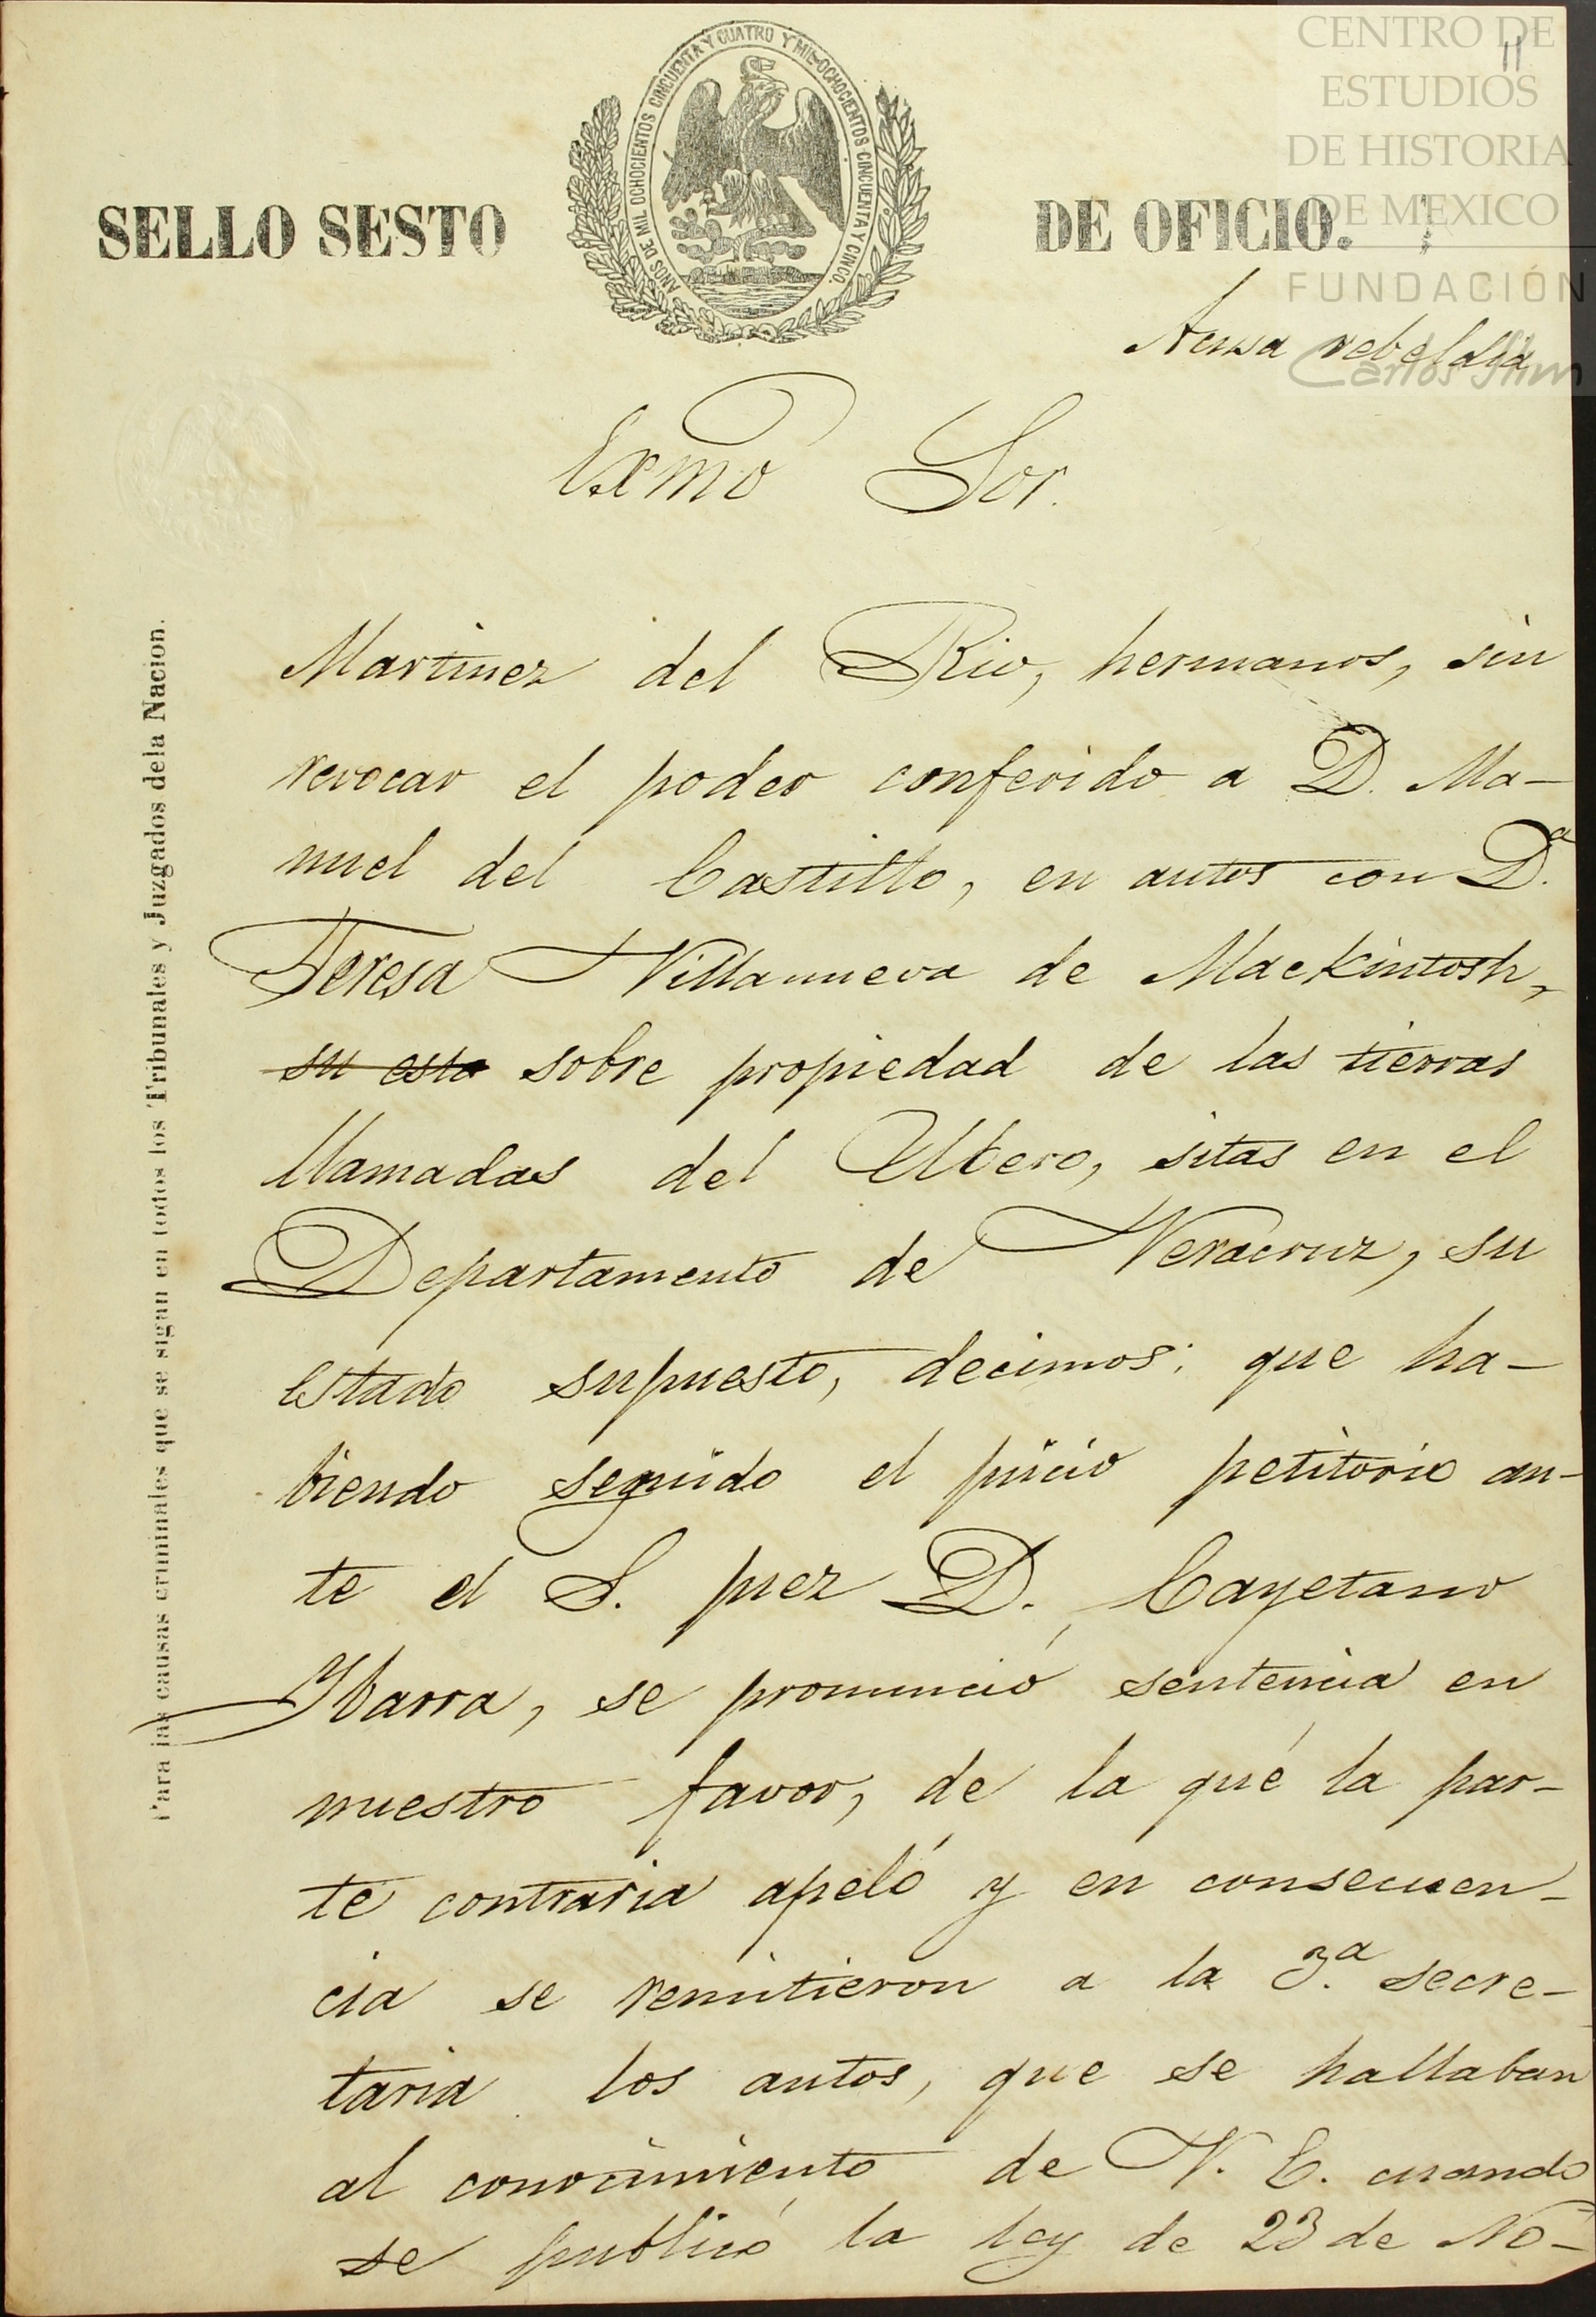 CENTRO DE
ESTUDIOS
DE HISTORIA
DE MEXICO
FUNDACIÓN
Carlos Slim
11
AÑOS DE MIL OCHOCIENTOS CINCUENTA Y CUATRO Y MIL OCHOCIENTOS CINCUENTA Y CINCO.
SELLO SESTO DE OFICIO.
Acusa rebeldia
Exmo Sor.
Martinez del Rio, hermanos, sin
revocar el poder conferido a D. Ma-
nuel del Castillo, en autos con Dª.
Teresa Villanueva de Mackintosh,
su esta sobre propiedad de las tierras
llamadas del Ubero, sitas en el
Departamento de Veracruz, su
estado supuesto, decimos: que ha-
biendo seguido el juicio petitorio an-
te el S. juez D. Cayetano
Ybarra, se pronunció sentencia en
nuestro favor, de la que la par-
te contraria apeló y en consecuen-
cia se remitieron a la 3.ª secre-
taria los autos, que se hallaban
al conocimiento de V. E. cuando
se publicó la ley de 23 de No-
Para las causas criminales que se sigan en todos los Tribunales y Juzgados dela Nacion.